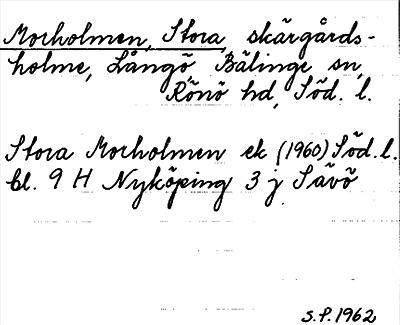 Morholmen, Stora, skärgårds-
holme, Långö, Bälinge sn,
Rönö hd, Söd. l.
Stora Morholmen ek (1960) Söd. l.
bl. 9 H Nyköping 3 j Sävö
S.P. 1962